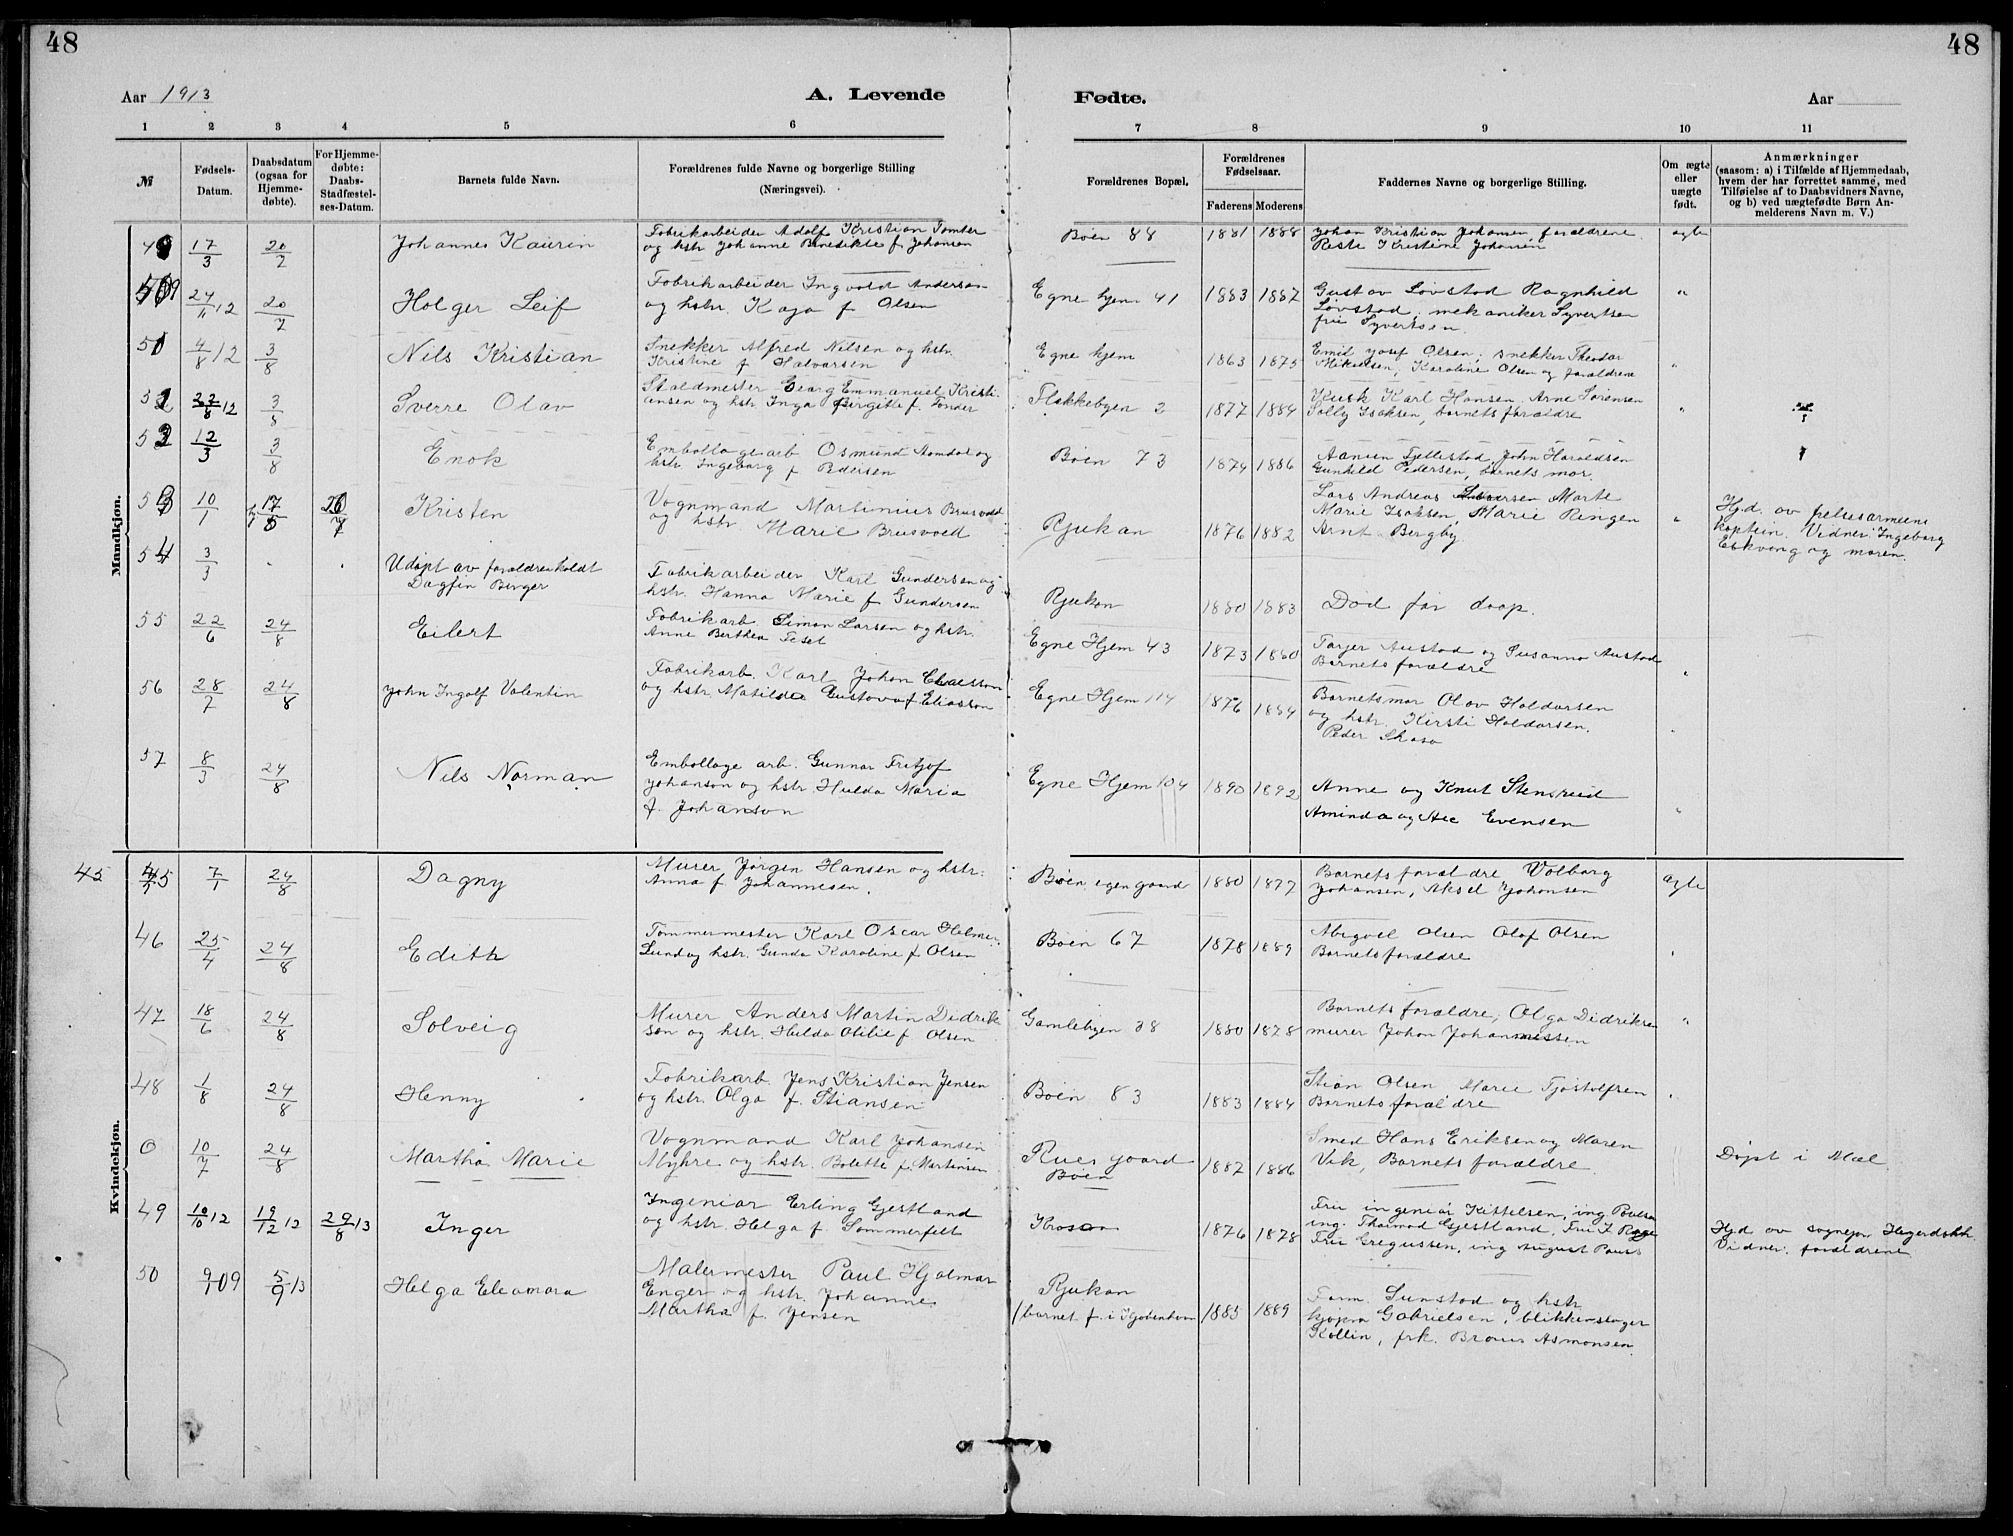 48
48
Aar 1913
A. Levende
Fødte.
Aar
1 2 3 4 5 6
7 8 9 10 11
№
Fødsels-Datum.
Daabsdatum (ogsaa for Hjemme-døbte).
For Hjemme-døbte: Daabs-Stadfæstel-ses-Datum.
Barnets fulde Navn.
Forældrenes fulde Navne og borgerlige Stilling
(Næringsvei).
Forældrenes Bopæl.
Forældrenes Fødselsaar.
Faderens Moderens
Faddernes Navne og borgerlige Stilling.
Om ægte eller uægte født.
Anmærkninger
(saasom: a) i Tilfælde af Hjemmedaab,
hvem der har forrettet samme, med
Tilføielse af to Daabsvidners Navne,
og b) ved uægtefødte Børn An-
melderens Navn m. V.)
Mandkjøn.
17/3 20/7 Johannes Kaurin
Fabrikarbeider Adolf Kristian Tomter
og hstr Johanne Benedikte f. Johansen
Bøen 88 1881 1888
Johan Kristian Johansen, forældrene
Kristine Johansen
ægte
24/11 12 20/7 Holger Leif
Fabrikarbeider Ingvald Andersen
og hstr. Kaja f Olsen
Egne hjem 41 1883 1887
Gustav Løvstad Ragnhild
Løvstad, mekaniker Syvertsen
fru Syvertsen.
"
51 4/8 12 3/8 Nils Kristian
Snekker Alfred Nilsen og hstr.
Kristine f Halvorsen
Egne hjem 1863 1875
Emil Josef Olsen, snekker Theodor
Mikalsen, Karoline Olsen og forældrene
"
12 3/8 Sverre Olav
Staldmester Georg Emmanuel Kristi-
ansen og hstr Inga Birgitte f. Tonder
Flekkebyen 2 1877 1884
Kusk Karl Hansen. Arne Sørensen
Solly Isaksen, barnets forældre
"
12/3 3/8 Enok
Emballagearb Osmund Aamdal og
hstr. Ingeborg f Pedersen
Bøen 73 1874 1886
Aanun Tjellestad, John Haraldsen
Gunhild Pedersen, barnets mor.
10/1 Kristen
Vognmand Martinius Brusvold
og hstr. Marie Brusvold
Rjukan 1876 1882
Lars Andreas Marte
Marie Isaksen, Marie Ringen
Arnt Bergby
"
Hjd. av frelsesarmeens
kaptein. Vidner: Ingeborg
Eskveng og moren.
54 3/3
Udøpt av forældrene kaldt
Dagfin Birger
Fabrikarbeider Karl Gundersen og
hstr. Hanna Marie f Gundersen
Rjukan 1880 1883 Død før daap.
55 22/6 24/8 Eilert
Fabrikarb. Simon Larsen og hstr.
Anne Berthea Teset
Egne Hjem 43 1873 1880
Tarjer Austad og Susanna Austad
Barnets forældre
"
56 28/7 24/8 John Ingolf Valentin
Fabrikarb. Karl Johan Claesson
og hstr. Matilda Gustava f Eliasson
Egne Hjem 114 1876 1884
Barnets mor Olav Haldorsen
og hstr. Kirsti Haldorsen.
Peder Skaso
"
57 8/3 24/8 Nils Norman
Emballage arb. Gunnar Fritjof
Johanson og hstr. Hulda Maria
f. Johanson
Egne Hjem 104 1890 1892
Anne og Knut Stensrud
Aminda og Evensen
"
Kvindekjøn.
45 45 7/1 24/8 Dagny
Murer Jørgen Hansen og hstr.
Anna f Johannesen.
Bøen egen gaard 1880 1877
Barnets forældre Valborg
Johansen, Aksel Johansen
ægte
46 25/4 24/8 Edith
Tømmermester Karl Oscar Helmer
Lund og hstr. Gunda Karoline f Olsen
Bøen 67 1878 1889
Abigael Olsen Olaf Olsen
Barnets forældre
"
47 18/6 24/8 Solveig
Murer Anders Martin Didrik-
sen og hstr. Hulda Otilie f. Olsen
Gamlebyen 38 1880 1878
Barnets forældre, Olga Didriksen
murer Johan Johannessen
"
48 1/8 24/8 Henny
Fabrikarb. Jens Kristian Jensen
og hstr. Olga f. Stiansen
Bøen 83 1883 1884
Stian Olsen Marie Tjostolfsen
Barnets forældre
"
0 10/7 24/8 Martha Marie
Vognmand Karl Johansen
Myhre og hstr. Bolette f. Martinsen
Rues gaard
Bøen
1887 1886
Smed Hans Eriksen og Maren
Vik, Barnets forældre
Døpt i Mæl
49 10/10 12 19/12 12 29/8 13 Inger
Ingeniør Erling Gjestland
og hstr. Helga f. Sommerfelt
Krosso 1876 1878
Fru ingeniør Kittelsen, ing Paulsen
ing. Thormod Gjestland, Fru
Fru Gregussen, ing August Paus
Hjd av sognepr.
Vidner: forældrene
50 9/9 09 5/9 13 Helga Eleonora
Malermester Paul Hjalmar
Enger og hstr. Johanne
Martha f. Jensen
Rjukan
(barnet f. i Kjøbenhavn
1885 1889
Form. Sunstad og hstr
kjøpm Gabrielsen, blikkenslager
Kollin, frk. Asmonsen.